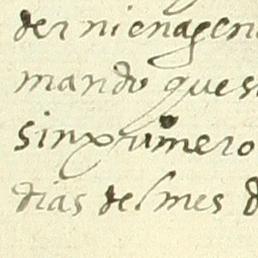 der ni enagen
mando que s
sin primero
dias del mes d